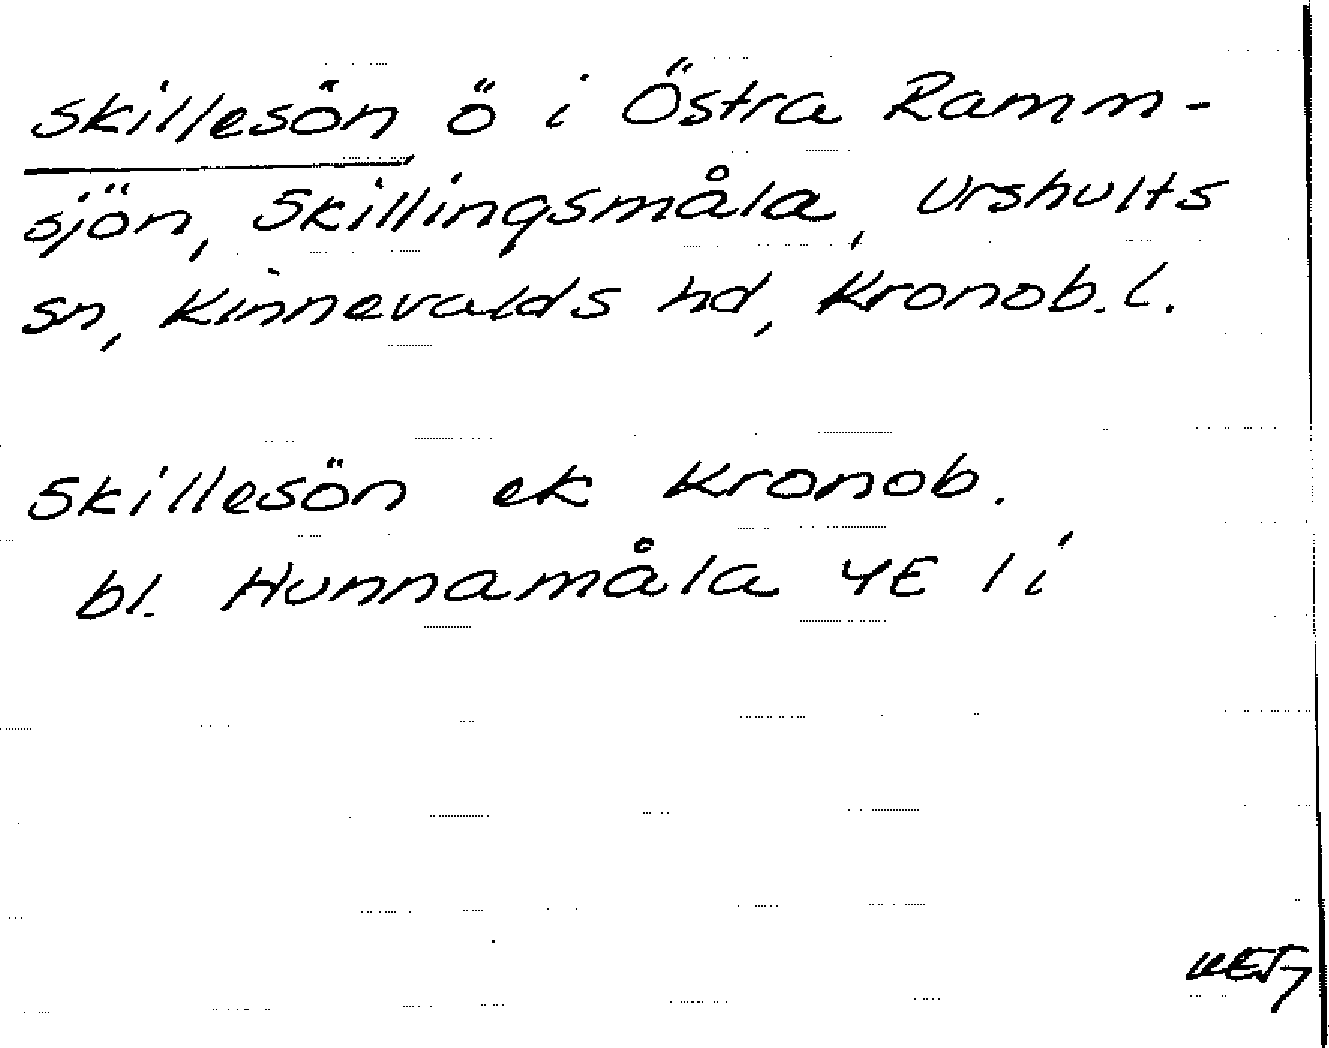 Skillesön ö i Östra Ramm-
sjön, Skillingsmåla, Urshults
sn, Kinnevalds hd, Kronob. l.
Skillesön ek Kronob.
bl. Hunnamåla 4E 1i